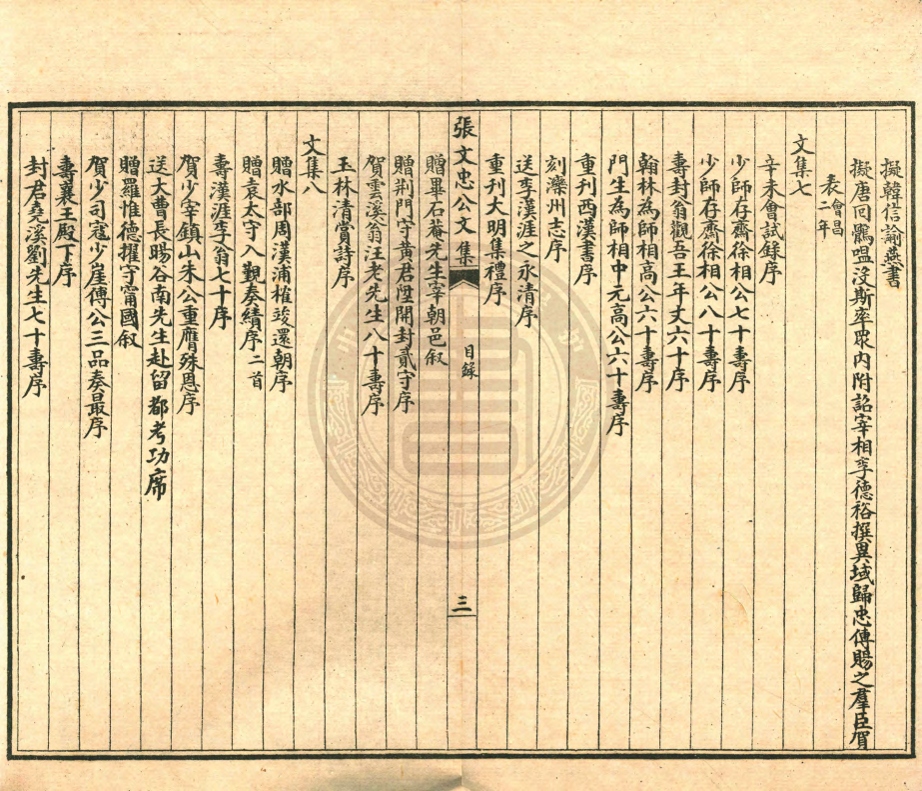 擬韓信諭燕書
擬唐回鶻嗢沒斯率眾內附詔宰相李德裕撰異域歸忠傳賜之羣臣賀
表會昌二年
文集七
辛未會試錄序
少師存齋徐相公七十壽序
少師存齋徐相公八十壽序
壽封翁觀吾王年丈六十序
翰林為師相高公六十壽序
門生為師相中元高公六十壽序
重刊西漢書序
刻灤州志序
送李漢涯之永清序
重刊大明集禮序
張文忠公文集
目錄
三
贈畢石菴先生宰朝邑敘
贈荆門守黃君陞開封貳守序
賀雲溪翁汪老先生八十壽序
玉林清賞詩序
文集八
贈水部周漢浦榷竣還朝序
贈袁太守入覲奏績序二首
壽漢涯李翁七十序
賀少宰鎮山朱公重膺殊恩序
送大曹長暘谷南先生赴留都考功席
贈羅惟德擢守甯國敘
賀少司寇少崖傅公三品奏最序
壽襄王殿下序
封君堯溪劉先生七十壽序